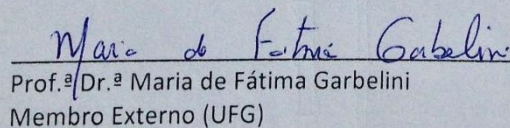 Maria de Fátima Garbelini
Prof.ª Dr.ª Maria de Fátima Garbelini
Membro Externo (UFG)